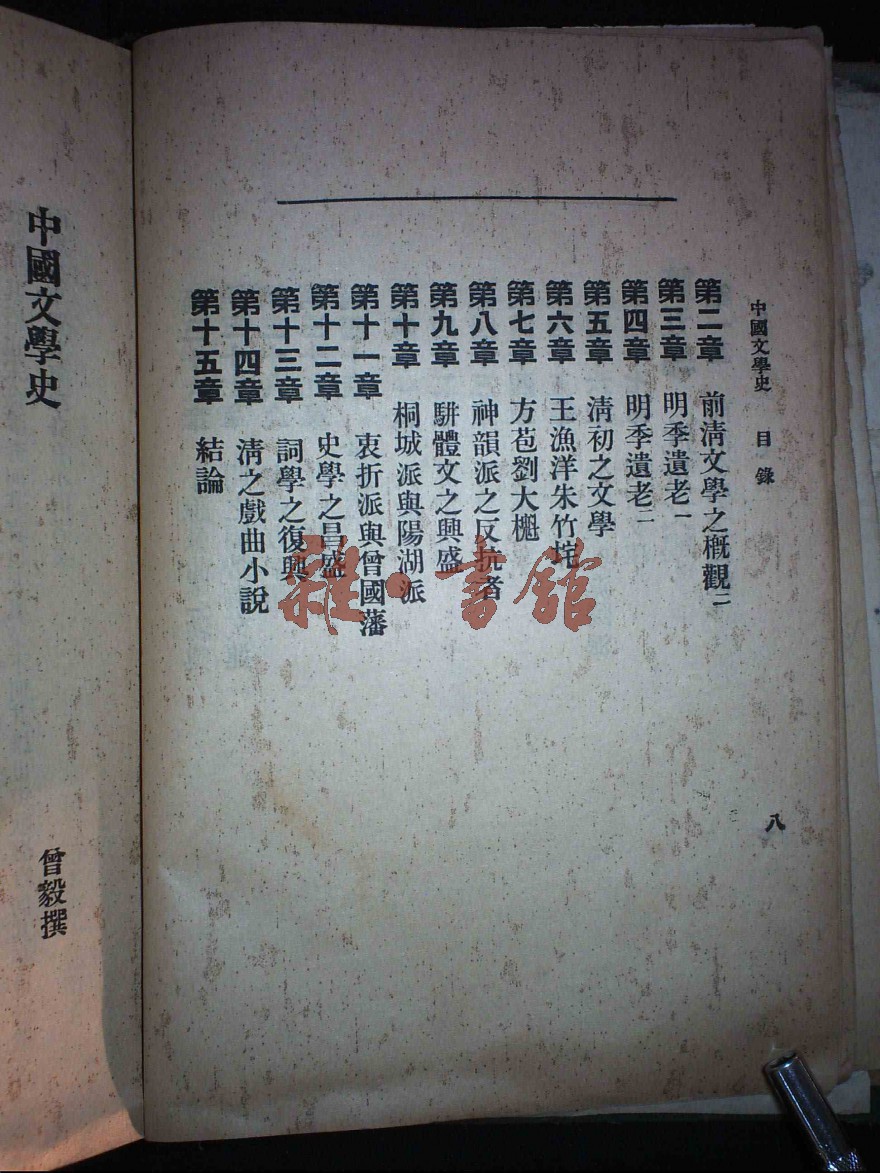 中國文學史　目錄
八
第二章　前淸文學之槪觀二
第三章　明季遺老一
第四章　明季遺老二
第五章　淸初之文學
第六章　王漁洋朱竹垞
第七章　方苞劉大櫆
第八章　神韻派之反抗者
第九章　駢體文之興盛
第十章　桐城派與陽湖派
第十一章　衷折派與曾國藩
第十二章　史學之昌盛
第十三章　詞學之復興
第十四章　淸之戲曲小說
第十五章　結論
雜·書館
中國文學史
曾毅撰